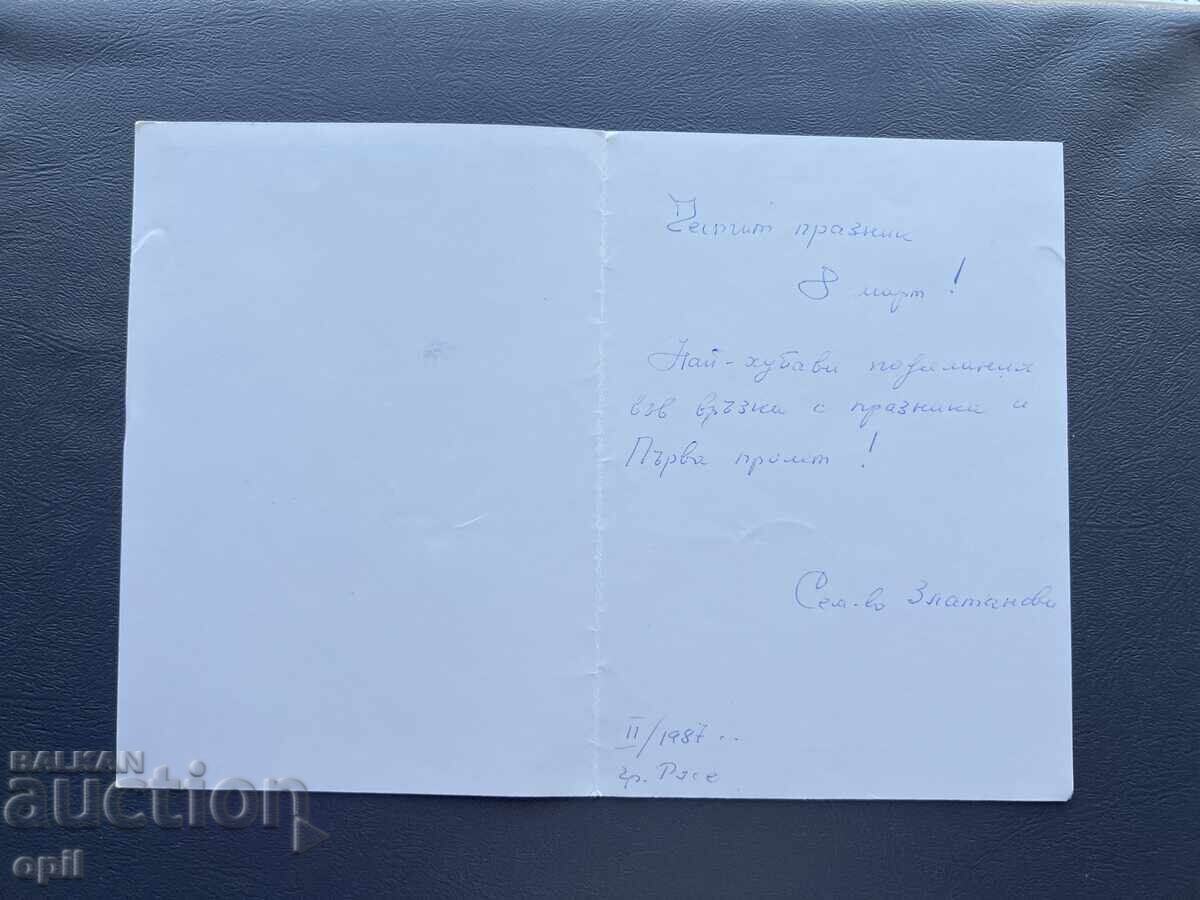 Честит празник
8 март!
Най-хубави пожелания
във връзка с празника и
Първа пролет!
Сем-во Златанови
II/1987..
гр. Русе
BALKAN
auction
opil